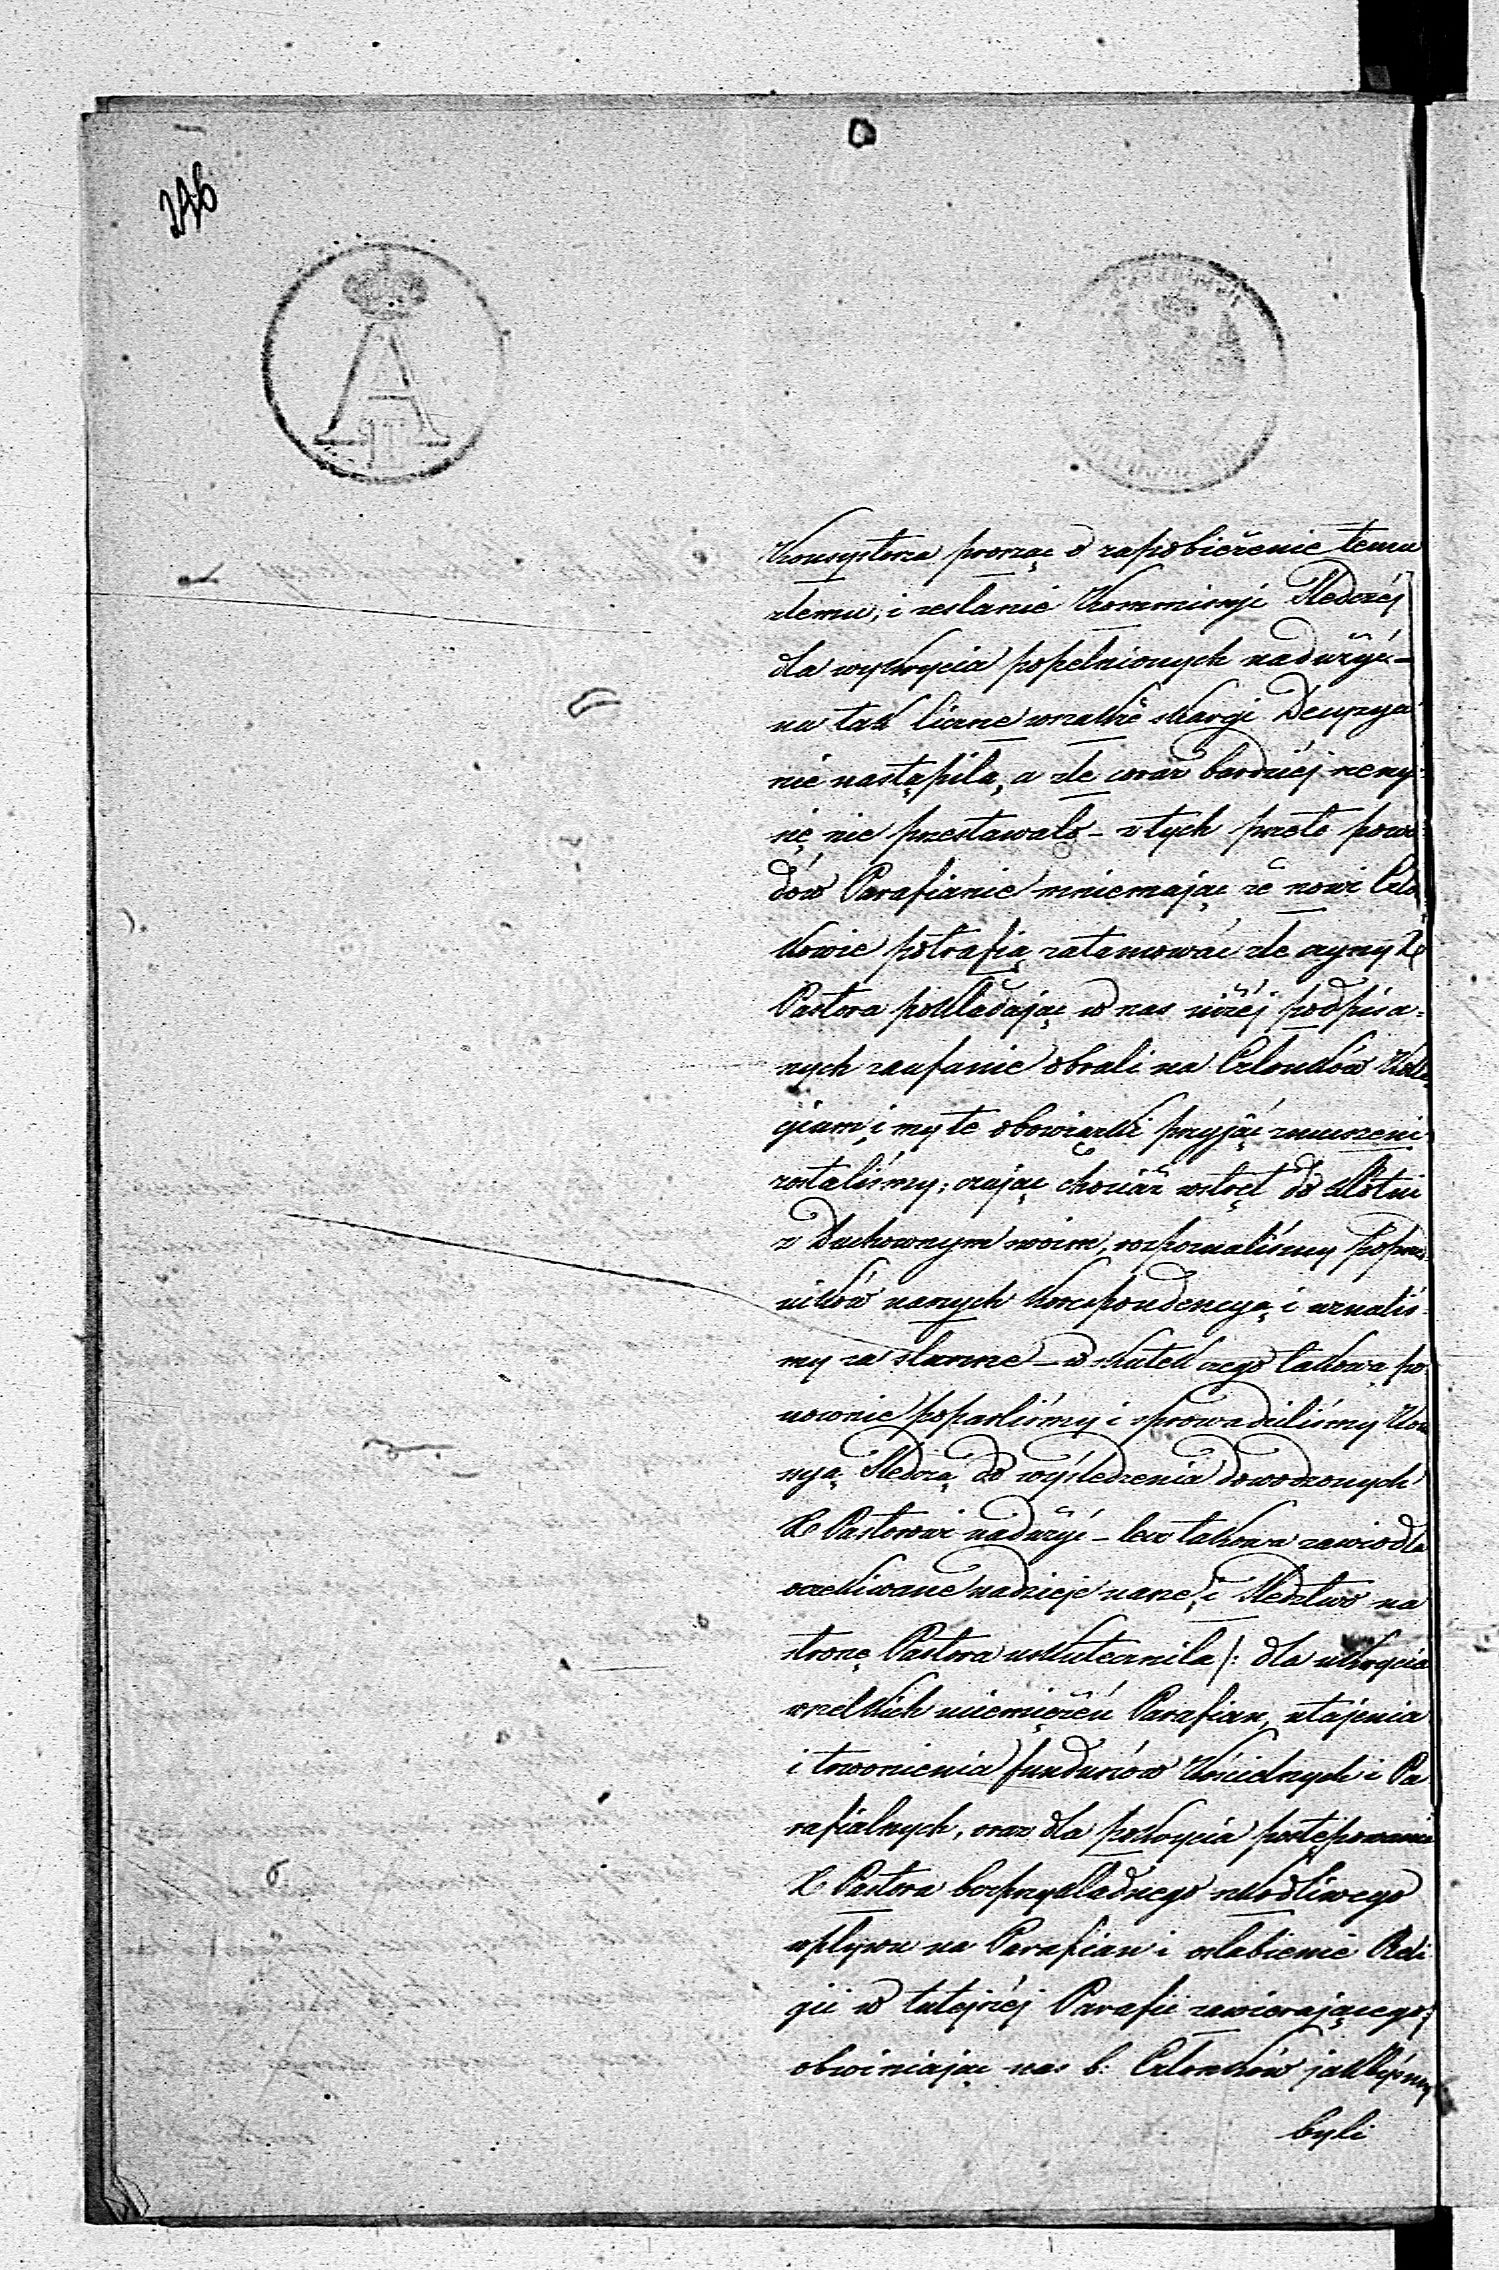 246
A
II
Konsystorza prosząc o zapobieżenie temu
złemu, i zesłanie Kommissyi Śledczéj
dla wykrycia popełnionych nadużyć –
na tak liczne wszakże skargi Decyzya
nie nastąpiła, a złe coraz bardziéj szerzyć
się nie przestawało – z tych przeto powo-
dów Parafianie mniemając że nowi Człon
kowie potrafią zatamować złe czyny X
Pastora pokładając w nas niżéj podpisa-
nych zaufanie obrali na Członków Kolle
gium, i my te obowiązki przyjąć zmuszeni
zostaliśmy; czując chociaż wstręt do kłótni
z Duchownym swoim, rozpoznaliśmy Poprzed
ników naszych korespondencyą i uznaliś-
my za słuszne – w skutek czego takową po
nownie poparliśmy i sprowadziliśmy Kom
syą Śledczą do wyśledzenia dowodzonych
X Pastorowi nadużyć – lecz takowa zawiodła
oczekiwane nadzieje nasze, i Śledztwo na
stronę Pastora uskuteczniła /: dla ukrycia
wszelkich uciemiężeń Parafian, utajenia
i trwonienia funduszów Kościelnych i Pa
rafialnych, oraz dla pokrycia postępowania
X Pastora bezprzykładnego szkodliwego
wpływu na Parafian i osłabienie Reli
gii w tutejszéj Parafii zawierającego;
obwiniając nas b: Członków jakbyśmy
byli